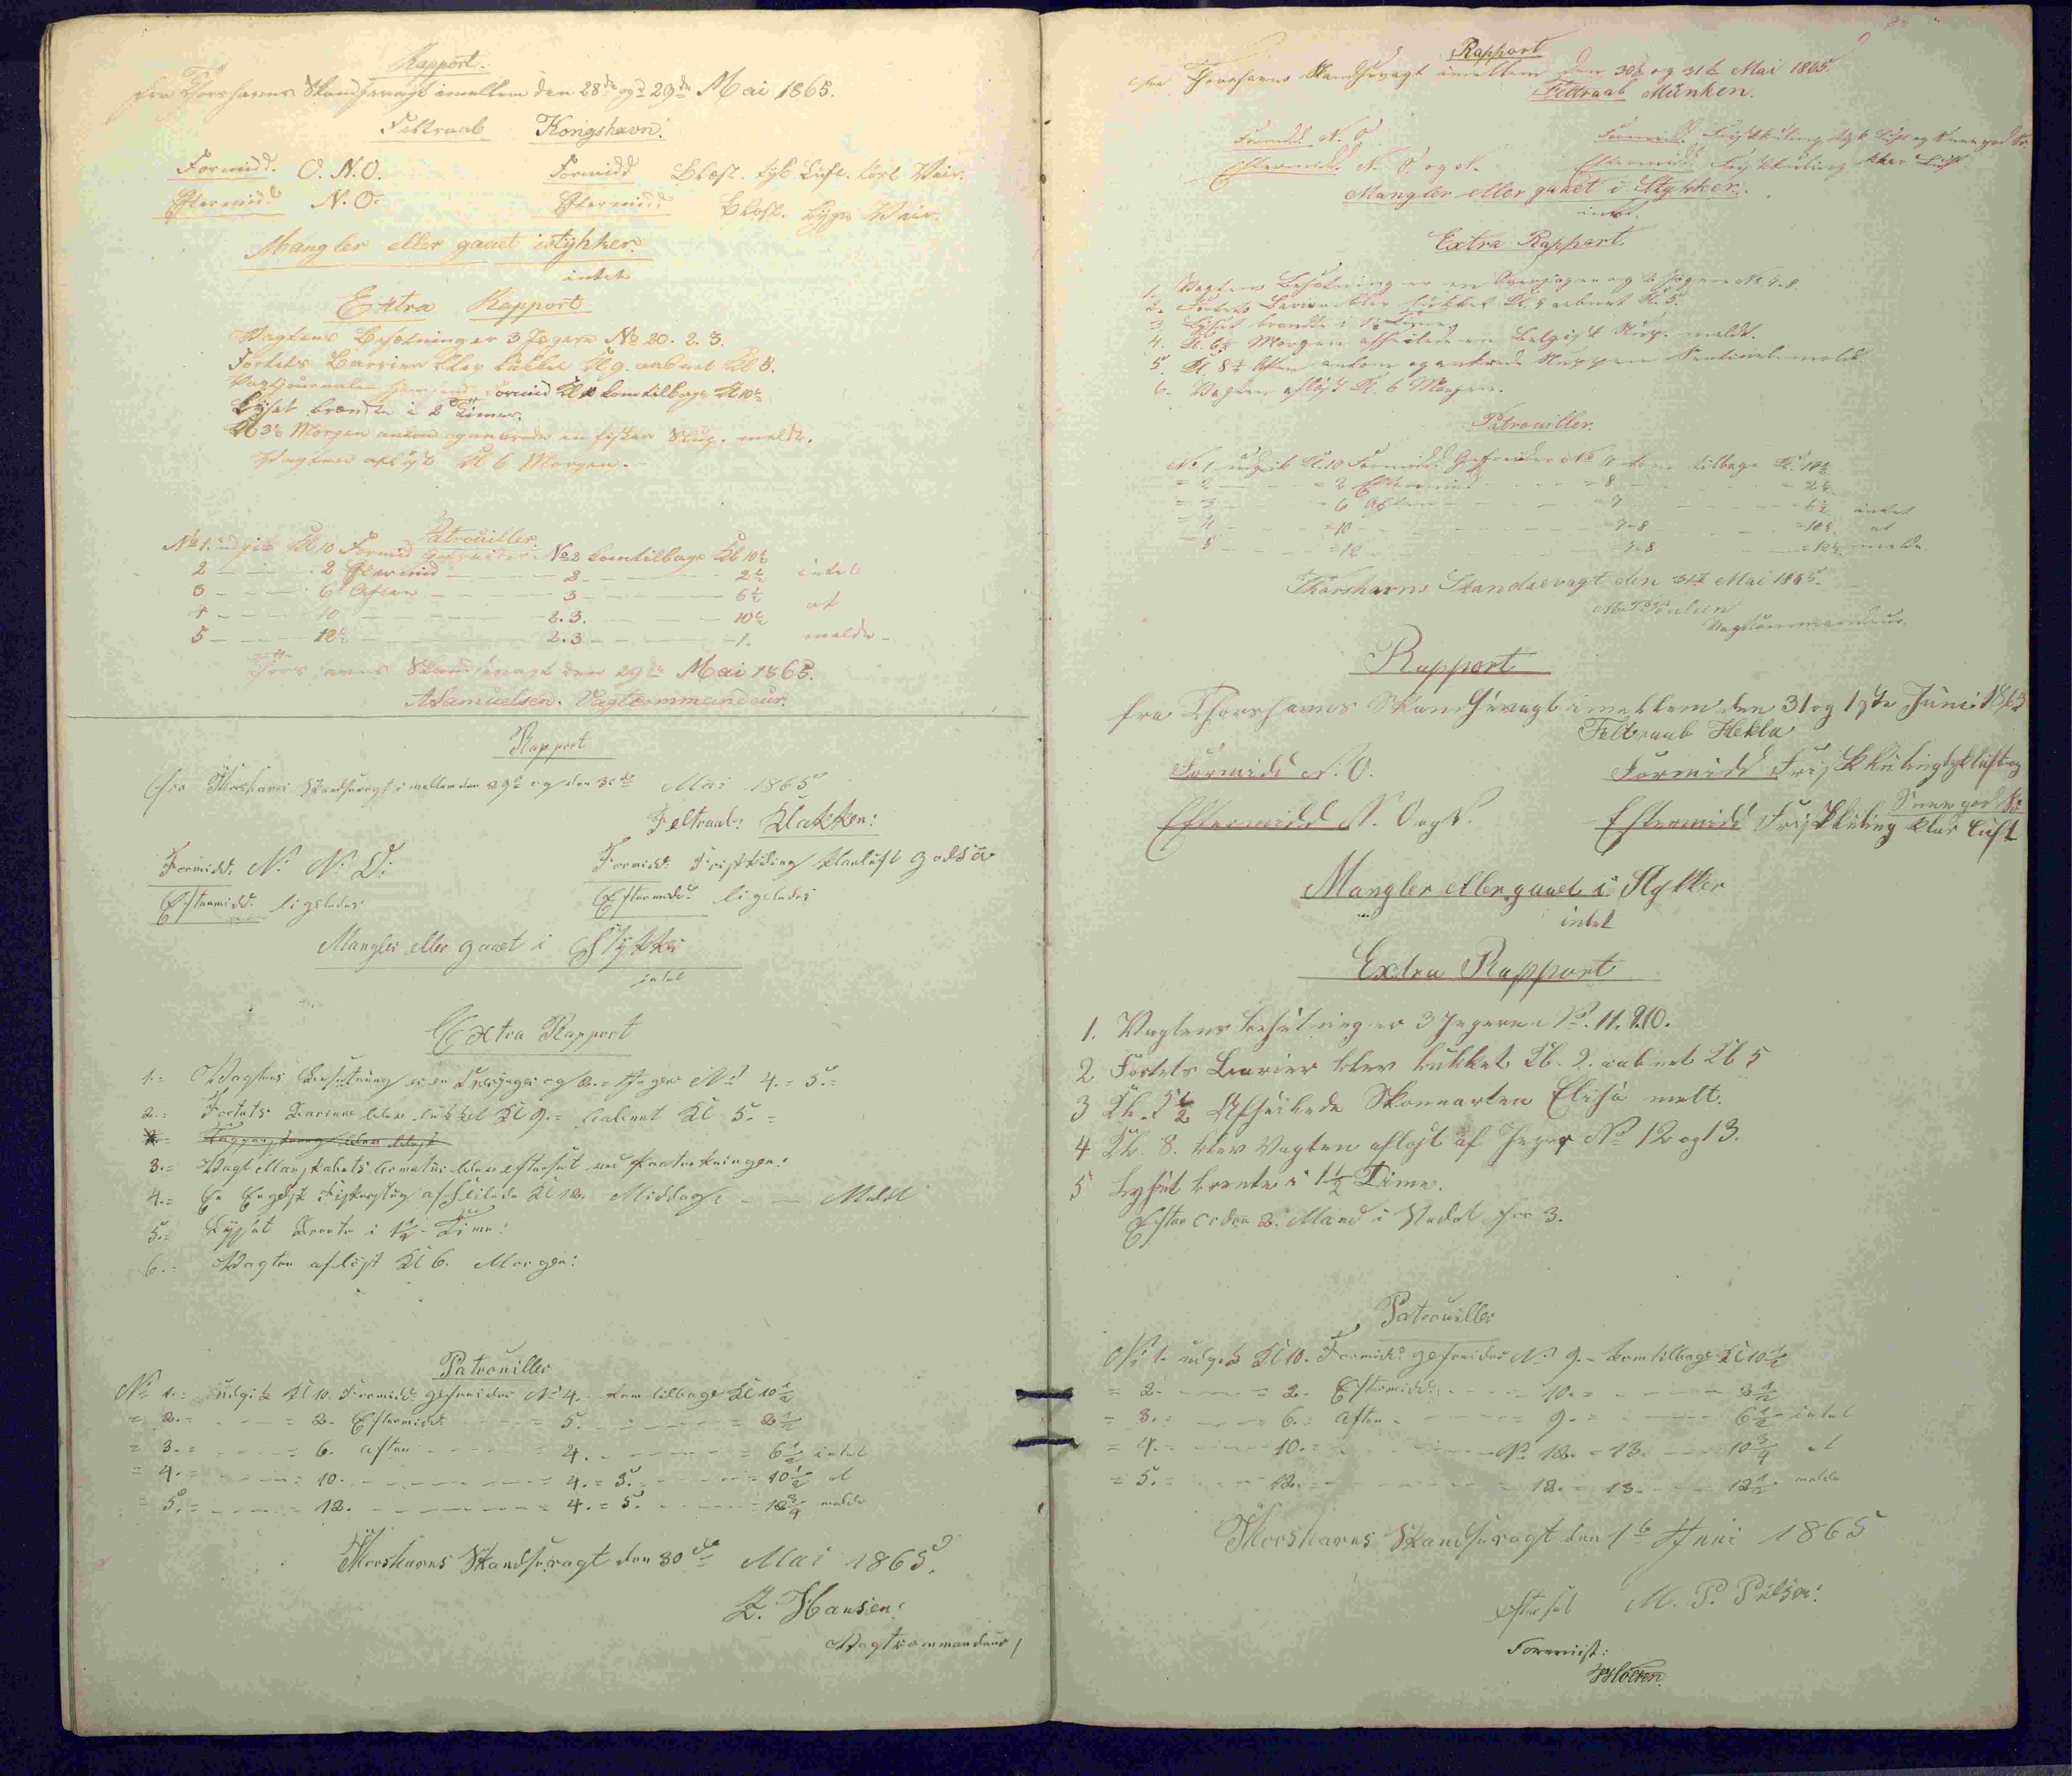 Rapport.
fra Thorshavns Skandsevagt imellem den 28de og 29de Mai 1865.
Feltraab Kongshavn.
Formidd. O. N. O. Formidd Blæst. tyk Luft. kort Veir.
Eftermidd N. O. Eftermidd Blæst. Veir.
Mangler eller gaaet istykker.
intet
Extra Rapport
Vagtens Besætning er 3 Jægere No 20. 2. 3.
Fortets Barriere blev lukket Kl 9. aabnet Kl 8.
Vagtjournalen Formid Kl 10 kom tilbage Kl 10½
Lyset brændte i 2 Timer.
Kl 3½ Morgen ankom og ankrede en fisker Slup. meldt.
Vagten afløst Kl 6 Morgen.
Patrouiller.
No 1. udgik Kl 10 Formid Gefreider No 2 kom tilbage Kl 10½
2 - - 2 Eftermid - - 3 - - 2½ intet
3 - - 6 Aften - - 3 - - 6½
4 - - 10 - - 2. 3. - - 10½ at
5 - - 12½ - - 2. 3 - - 1. melde
Thorshavns Skandsevagt den 29de Mai 1865.
A Samuelsen. Vagtcommandeur.
Rapport
fra Thorshavns Skandsevagt imellem den 29de og den 30de Mai 1865
Feltraab: Klakken:
Formidd: N. N. O: Formidd: Friskkuling klar luft god Sø
Eftermidd. ligeledes Eftermidd: ligeledes
Mangler eller gaaet i Stykker
intet
Extra Rapport
1. Vagtens Besætning er en Overjæger og 2. Jæger No 4. 5.
2. Fortets Bariere blev lukket Kl 9. aabnet Kl 5.
3. Vagt Mandskabets Armatur blev efterset
4. En Engelsk Fiskerslup afseilede Kl 12. Middag - - Meldt
5. Lyset brente i 1½ Time:
6. Vagten afløst Kl 6. Morgen:
Patrouiller
No 1. udgik Kl 10. Formidd gefreider No 4. kom tilbage Kl 10½
= 2. - - = 2. Eftermidd: - - = 5. - - = 2½
= 3. - - = 6. aften - - 4. - - = 6½ intet
= 4. - - = 10. - - = 4. = 5. - - = 10½ at
= 5. - - = 12. - - = 4. = 5. - - = 12¾ melde
Thorshavns Skandsevagt den 30de Mai 1865.
Z. Hansen:
Vagtcommandeur
Rapport
fra Thorshavns Skandsevagt imellem den 30te og 31te Mai 1865
Feltraab Munken.
Formidd. N. O Formidd. Friskkuling tyk Luft og Snee god Sø.
Eftermidd. N. O. og N. Eftermidd. Friskkuling klar Luft
Mangler eller gaaet i Stykker.
intet.
Extra Rapport
1. Vagtens Besætning er en Overjæger og 2 Jægere No 7. 8
2. Fortets Bariere blev lukket Kl. 9 aabnet Kl. 5.
3. Lyset brendte i 1½ Time.
4. Kl. 6½ Morgen afseilede en Belgisk Slup. meldt.
5. Kl. 8½ Aften ankom og ankrede Sluppen Sentinel meldt.
6. Vagten afløst Kl. 6 Morgen.
Patrouiller.
No 1 udgik Kl. 10 Formidd. Gefreider No 7 kom tilbage Kl. 10½
= 2 - - = 2 Eftermid - - = 8 - - = 2½
= 3 - - = 6 Aften - - = 7 - - = 6½ intet
= 4 - - = 10 - - = 7-8 - - = 10½ at
= 5 - - = 12 - - = 7-8 - - = 12½ melde
Thorshavns Skandsevagt den 31te Mai 1865.
Poulsen
Vagtkommandeur.
Rapport
fra Thorshavns Skandsevagt imellem den 31 og 1ste Juni 1865
Feltraab Hekla
Formidd N. O. Formidd Friskkuling tyk luft og
Snee god Sø
Eftermidd N. O og N. Eftermidd Friskkuling klar Luft
Mangler eller gaaet i Stykker
intet
Extra Rapport
1. Vagtens besætning er 3 Jegere No. 11. 9. 10.
2 Fortets Barrier blev lukket Kl. 9. aabnet Kl 5
3 Kl. 5½ Afseilede Skonnarten Elisa melt.
4 Kl. 8. blev Vagten afløst af Jeger No 12 og 13.
5 Lyset brente i 1½ Time.
Efter orden 2. Mand i Stedet for 3.
Patrouiller
No 1. udgik Kl 10. Formidd gefreider No 9. kom tilbage Kl 10½
= 2. - - = 2. Eftermidd: - - 10. = - - 2½
= 3. - - 6. aften - - = 9. = - - 6½ intet
= 4. - - 10. - - No 12. = 13. - - 10¾ at
= 5. - - 12. - - = 12. = 13. - - 12½ melde
Thorshavns Skandsevagt den 1te Juni 1865
Efterset M. P.
Foreviist:
HHolten